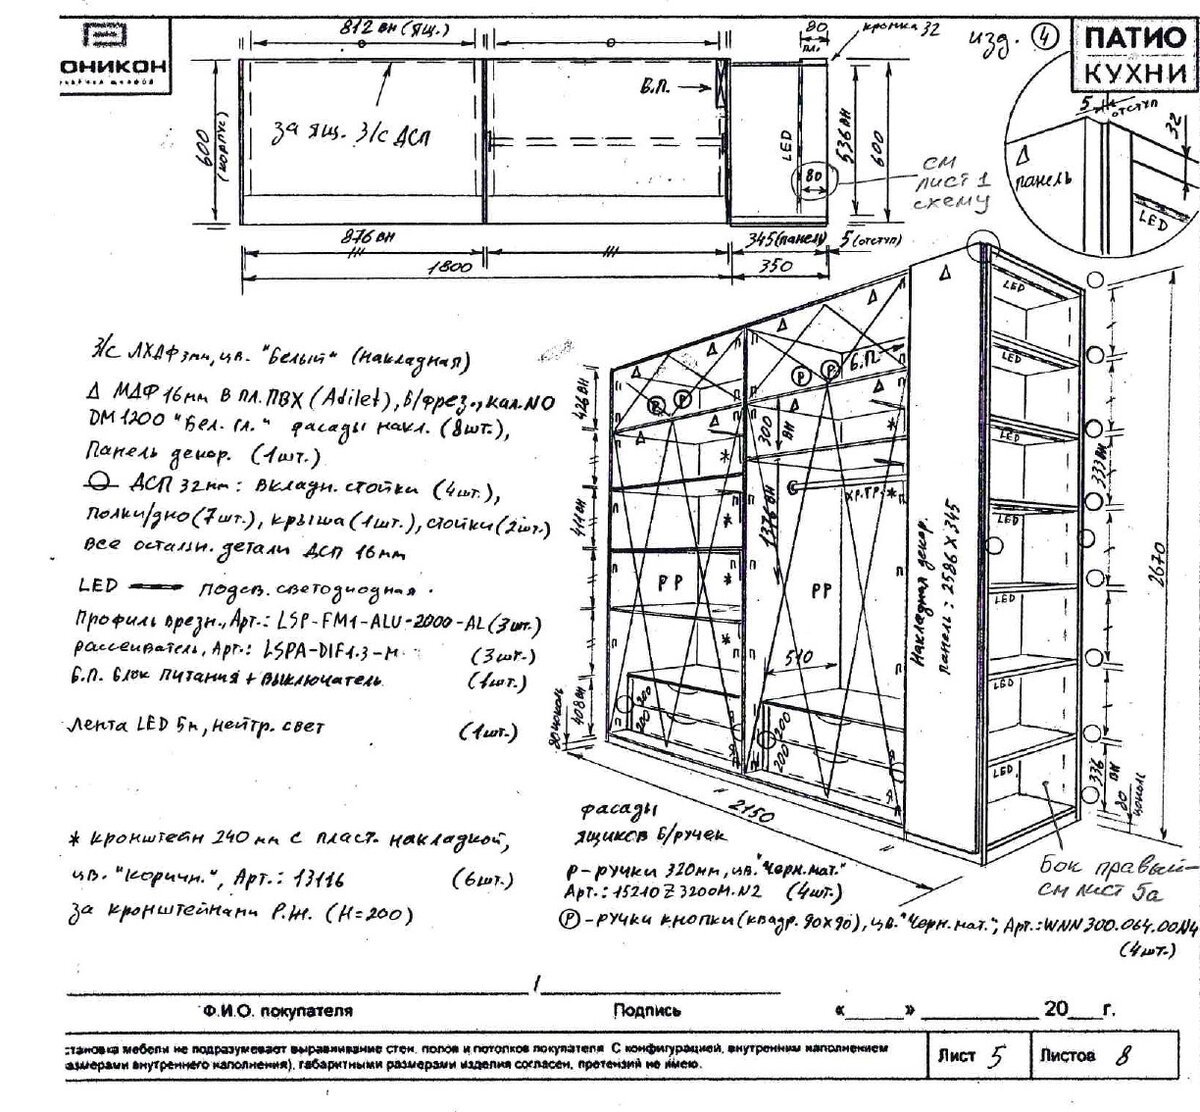 ОНИКОН
ПАТИО
КУХНИ
изд. 4
812 вн (ящ.)
80
пл.
кромка 32
Б.П.
за ящ. З/с ДСП
600
(корпус)
LED
536 вн
600
80
см
лист 1
схему
5
отступ
32
Δ
панель
LED
876 вн
345(панель)
5 (отступ)
1800
350
З/с ЛХДФ 3мм, цв. "Белый" (накладная)
Δ МДФ 16мм в пл. ПВХ (Adilet), б/фрез., кал. NO
DM1200 "Бел. гл." фасады накл. (8шт.),
Панель декор. (1шт.)
ДСП 32мм: вкладн. стойки (4шт.),
полки/дно (7шт.), крыша (1шт.), стойки (2шт.)
все остальн. детали ДСП 16мм
LED подсв. светодиодная.
Профиль врезн., Арт.: LSP-FM1-ALU-2000-AL (3шт.)
рассеиватель, Арт.: LSPA-DIF1.3-M (3шт.)
Б.П. Блок питания + выключатель (1шт.)
Лента LED 5м, нейтр. свет (1шт.)
* кронштейн 240 мм с пласт. накладкой,
цв. "коричн.", Арт.: 13116 (6шт.)
за кронштейнами Р.Ж. (H=200)
426 вн
411 вн
408 вн
80 цоколь
Р Р
300 вн
1376 вн
хр.тр.
Б.П.
Р Р
510
200
200
200
200
Накладная декор.
панель: 2586 X 345
LED
LED
LED
LED
LED
LED
LED
333 вн
336 вн
80
цоколь
2670
2150
фасады
ящиков б/ручек
р-ручки 320мм, цв. "Черн. мат."
Арт.: 15210Z3200H.N2 (4шт.)
Р - ручки кнопки (квадр. 90х90), цв. "Черн. мат.", Арт.: WNN300.064.00N4
(4шт.)
бок правый-
см лист 5а
/
Ф.И.О. покупателя
Подпись
« » 20 г.
становка мебели не подразумевает выравнивание стен, полов и потолков покупателя. С конфигурацией, внутренним наполнением
азмерами внутреннего наполнения), габаритными размерами изделия согласен, претензий не имею.
Лист 5
Листов 8